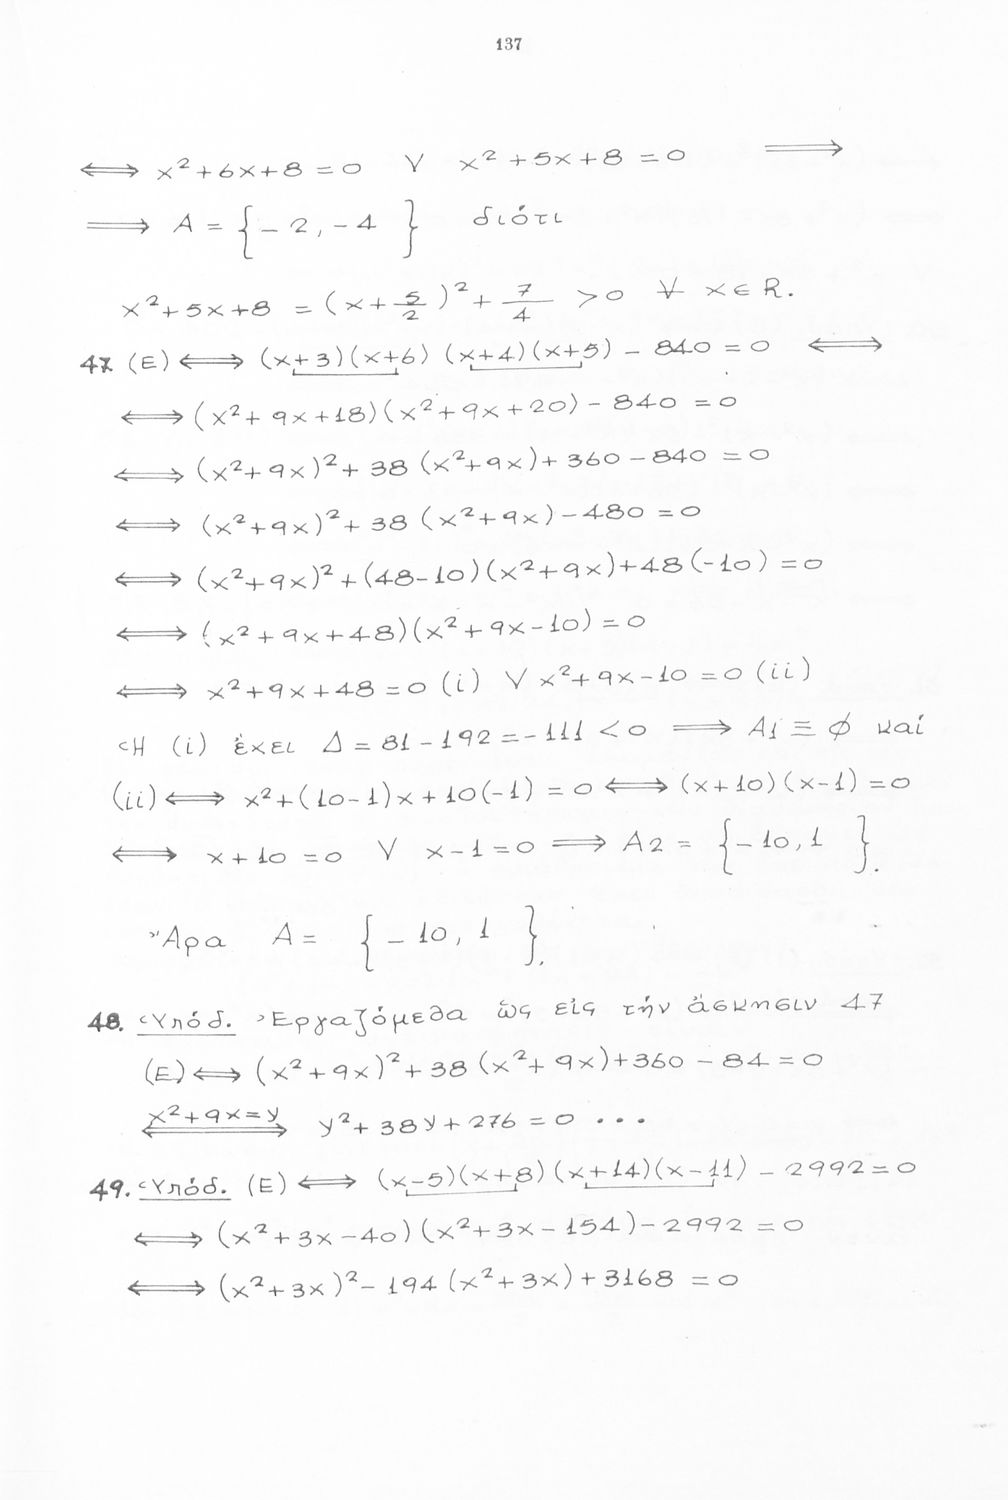 137
⟺ x²+6x+8=0 V x²+5x+8=0 ⟹
⟹ A = {-2, -4} διότι
x²+5x+8 = (x+5/2)²+7/4 >0 ∀ x∈R.
47. (E) ⟺ (x+3)(x+6)(x+4)(x+5) - 840 = 0 ⟺
⟺ (x²+9x+18)(x²+9x+20) - 840 = 0
⟺ (x²+9x)²+38(x²+9x)+360-840 = 0
⟺ (x²+9x)²+38(x²+9x)-480 = 0
⟺ (x²+9x)²+(48-10)(x²+9x)+48(-10) = 0
⟺ (x²+9x+48)(x²+9x-10) = 0
⟺ x²+9x+48=0 (i) V x²+9x-10=0 (ii)
Ἡ (i) ἔχει Δ = 81-192 = -111 < 0 ⟹ A1 ≡ ∅ καί
(ii) ⟺ x²+(10-1)x+10(-1) = 0 ⟺ (x+10)(x-1) = 0
⟺ x+10=0 V x-1=0 ⟹ A2 = {-10, 1}.
Ἄρα A = {-10, 1}.
48. Ὑπόδ. Ἐργαζόμεθα ὡς εἰς τήν ἄσκησιν 47
(E) ⟺ (x²+9x)²+38(x²+9x)+360-84 = 0
x²+9x=y ⟺ y²+38y+276 = 0 ...
49. Ὑπόδ. (E) ⟺ (x-5)(x+8)(x+14)(x-11) - 2992 = 0
⟺ (x²+3x-40)(x²+3x-154) - 2992 = 0
⟺ (x²+3x)²-194(x²+3x)+3168 = 0